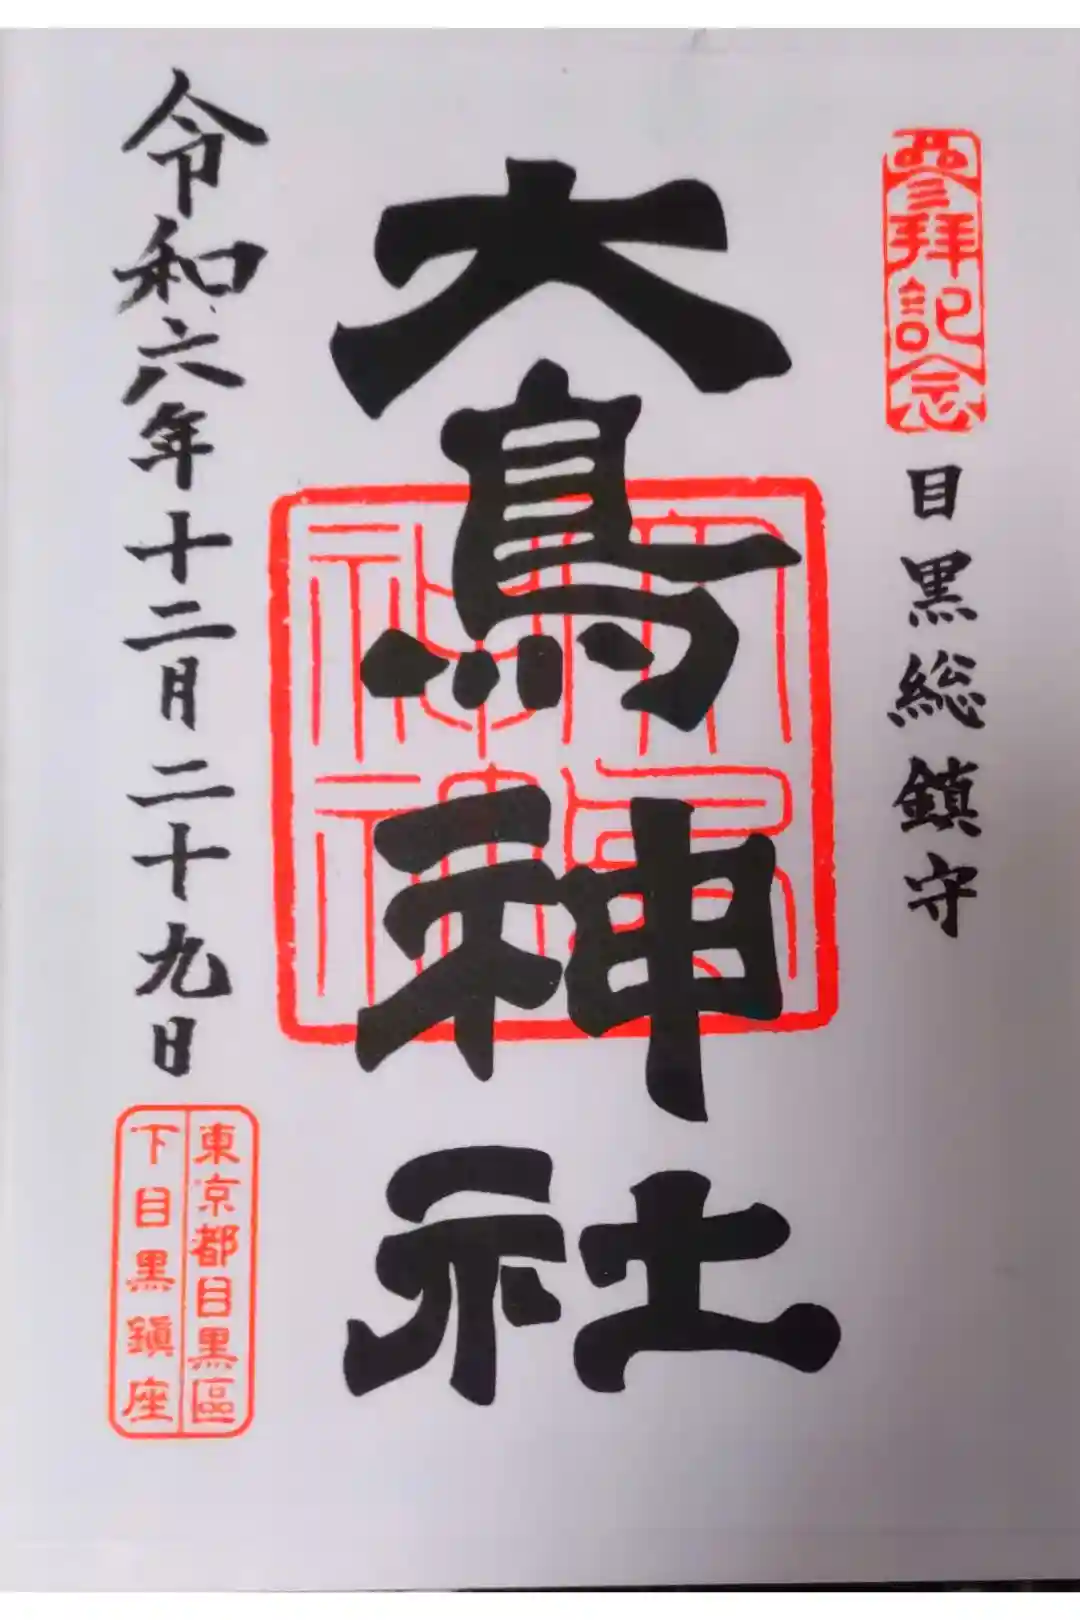 參拜記念
目黒総鎮守
大鳥神社
令和六年十二月二十九日
東京都目黒區
下目黒鎭座